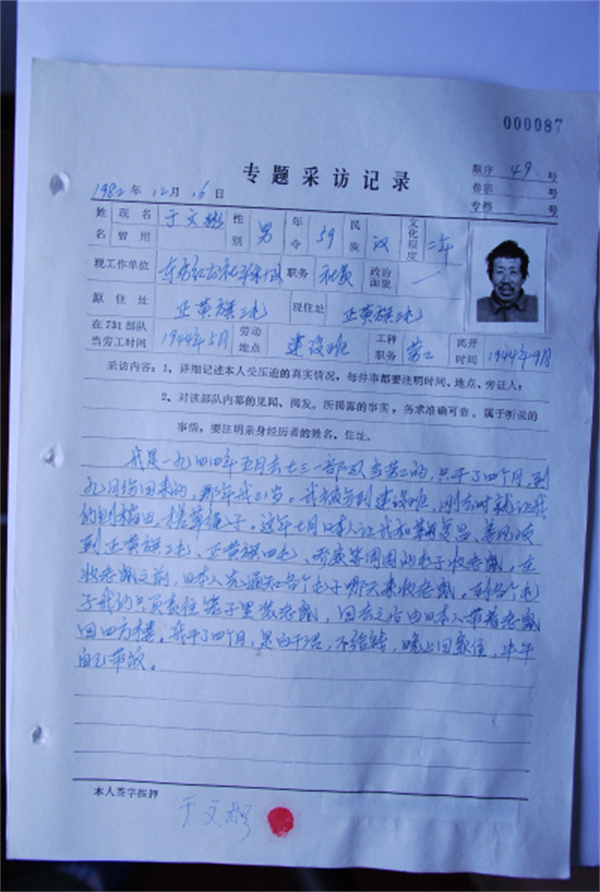 000087
专题采访记录
顺序 49 号
卷宗 号
专档 号
1982年12月16日
姓名 现名 于文彬 性别 男 年令 59 民族 汉 文化程度 二年
曾用
现工作单位 职务 社员 政治面貌 一
原住址 正黄旗三屯 现住址 正黄旗三屯
在731部队当劳工时间 1944年5月 劳动地点 建设班 工种职务 劳工 离开时间 1944年9月
采访内容:1、详细记述本人受压迫的真实情况。每件事都要注明时间、地点、旁证人;
2、对该部队内幕的见闻、揭发。所揭露的事实,务求准确可靠。属于听说的
事情,要注明亲身经历者的姓名、住址。
我是一九四四年五月去七三一部队当劳工的,只干了四个月,到
九月份回来的,那年我二十一岁。我被分到建设班,刚去时就让我
们割稻田、搓草绳子。这年七月日本人让我和
到正黄旗二屯、正黄旗四屯、等周围的屯子收老鼠,在
收老鼠之前,日本人先通知各个屯子哪天来收老鼠。到各个屯
子我们只负责往笼子里装老鼠,回去之后由日本人带着老鼠
回四方楼。我干了四个月,是白干活,不给钱,晚上回家住,中午
自己带饭。
本人签字按押
于文彬